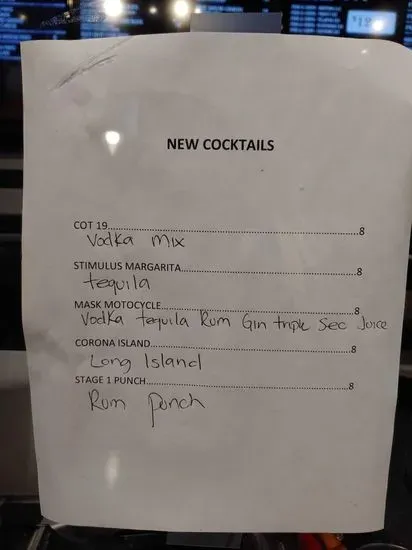 NEW COCKTAILS
COT 19..........8
Vodka mix
STIMULUS MARGARITA..........8
tequila
MASK MOTOCYCLE..........8
Vodka tequila Rum Gin triple Sec Juice
CORONA ISLAND..........8
Long Island
STAGE 1 PUNCH..........8
Rum punch